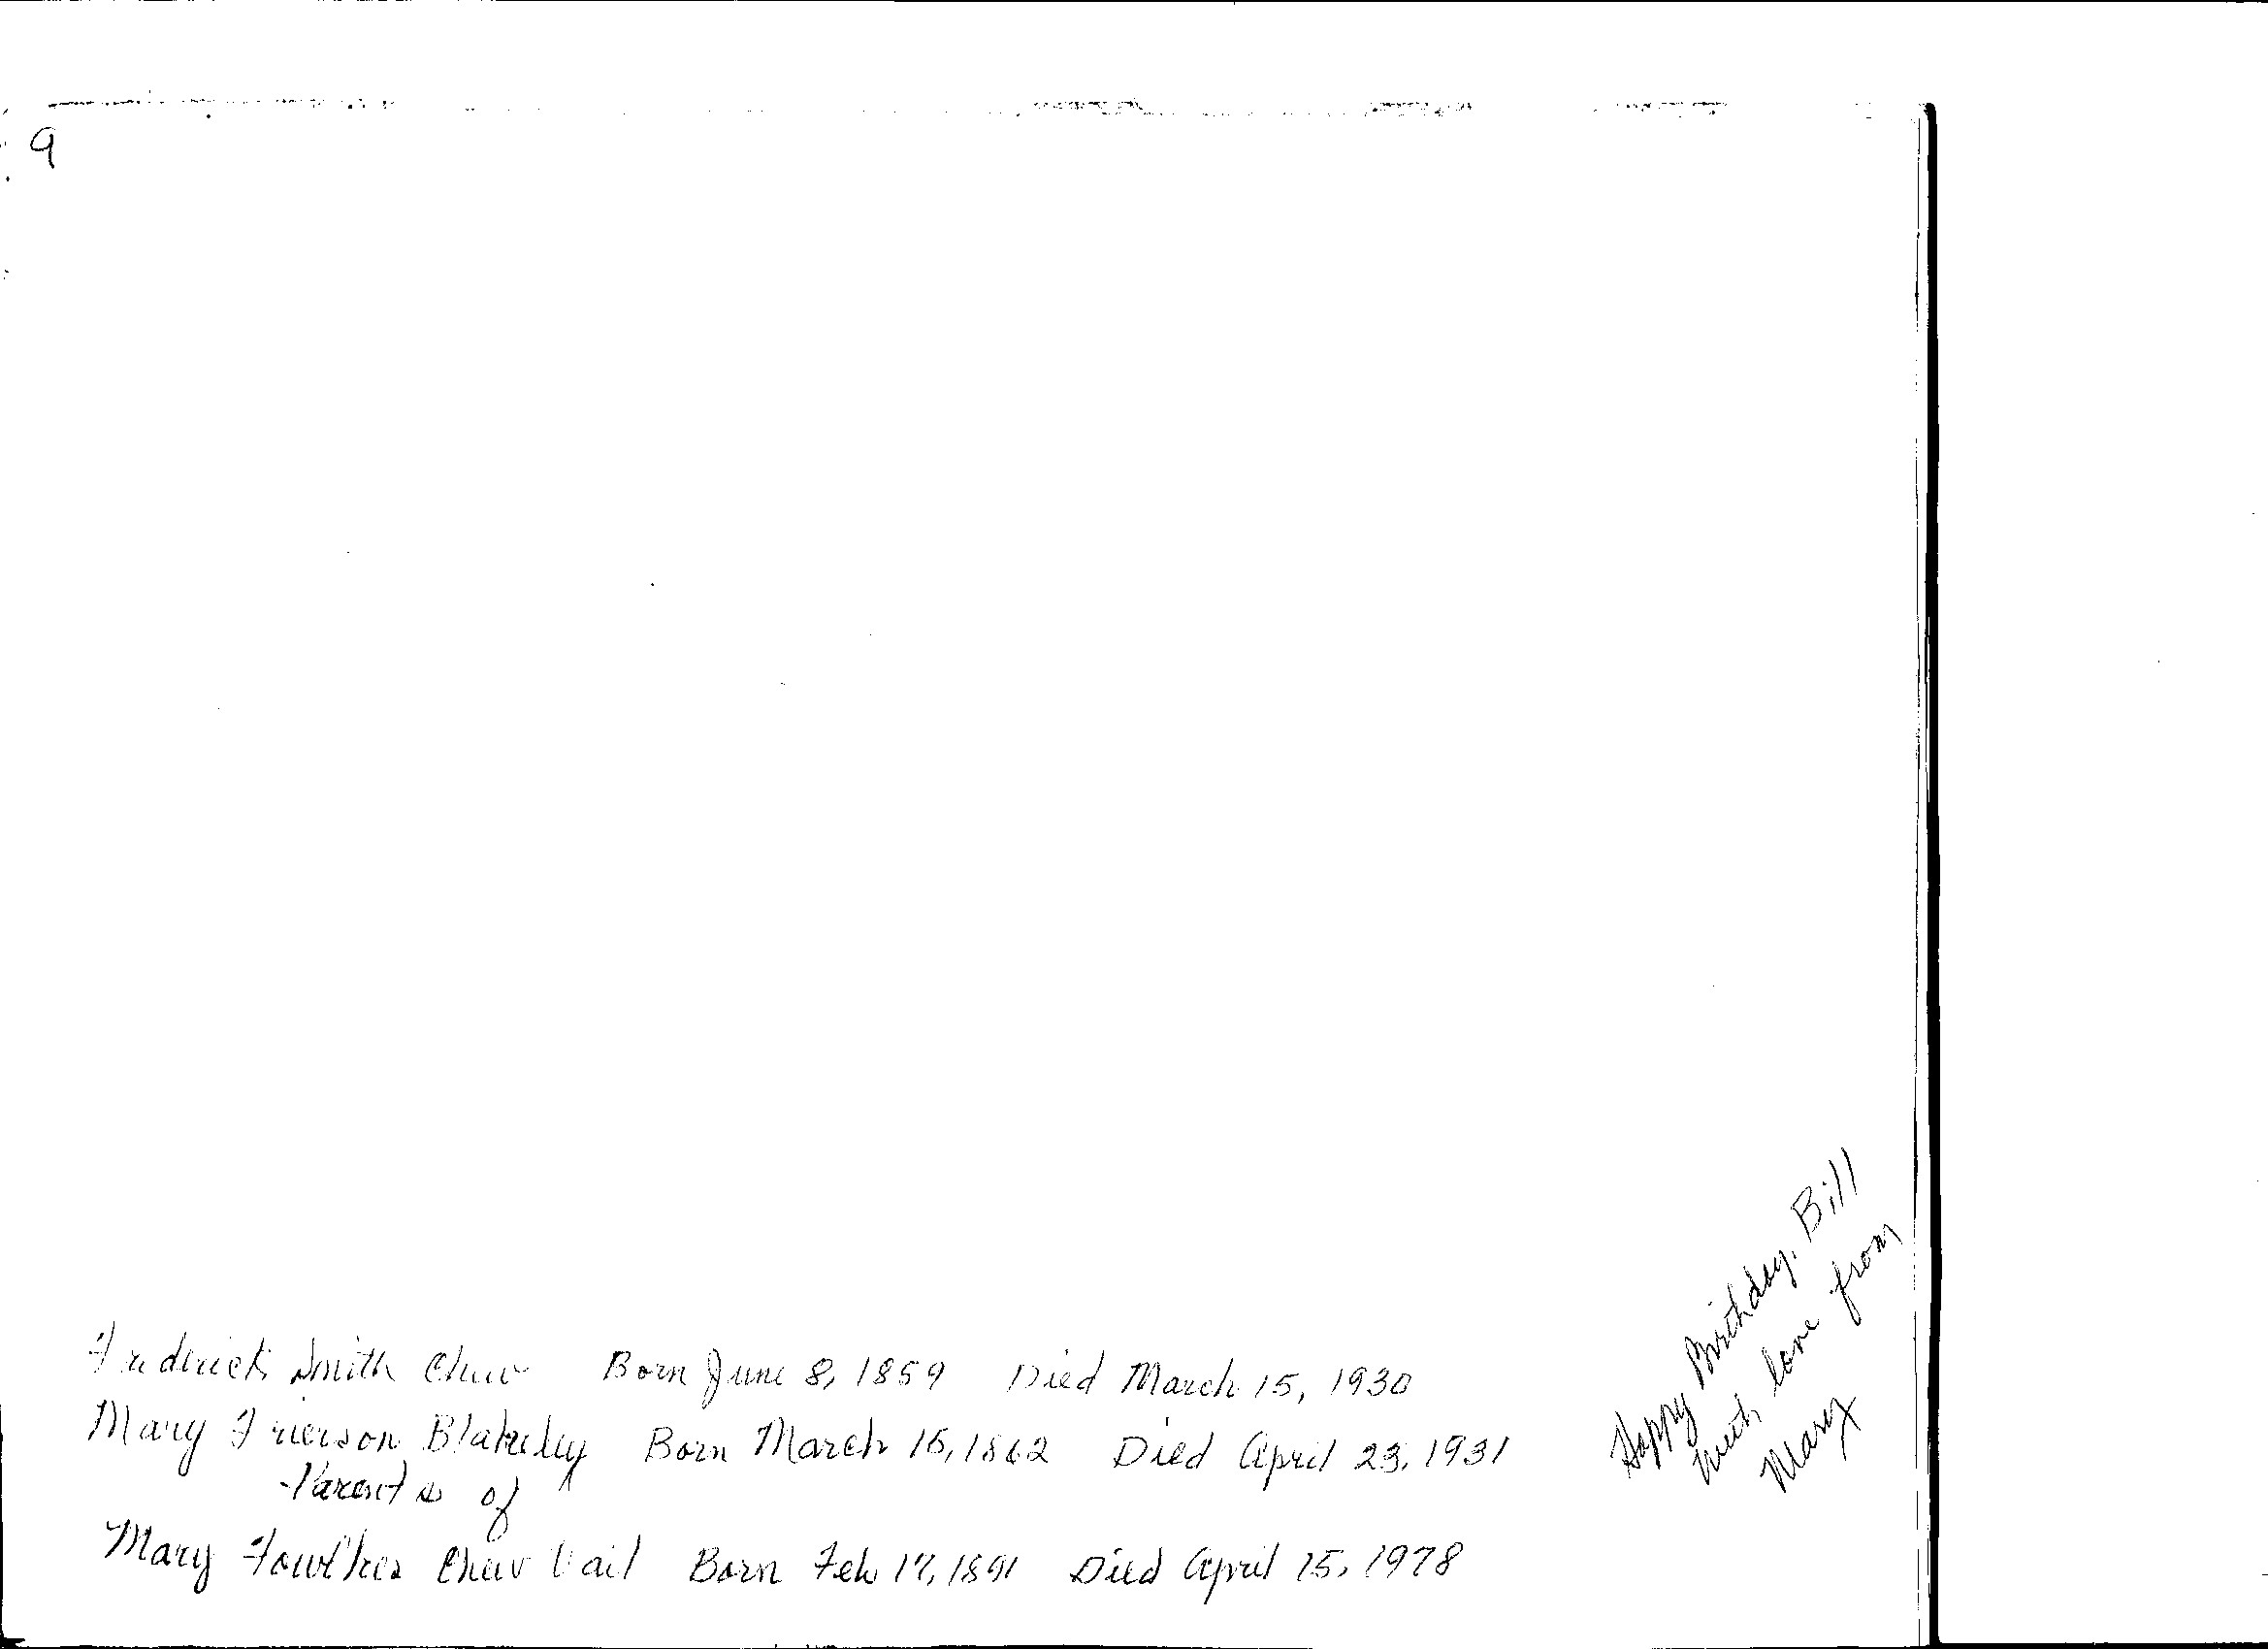 9
Frederick Smith Chew Born June 8, 1859 Died March 15, 1930
Mary Frierson Blakeley Born March 15, 1862 Died April 23, 1931
Parents of
Mary Fowlkes Chew Vail Born Feb 17, 1891 Died April 15, 1978
Happy Birthday, Bill
with love from
Mary